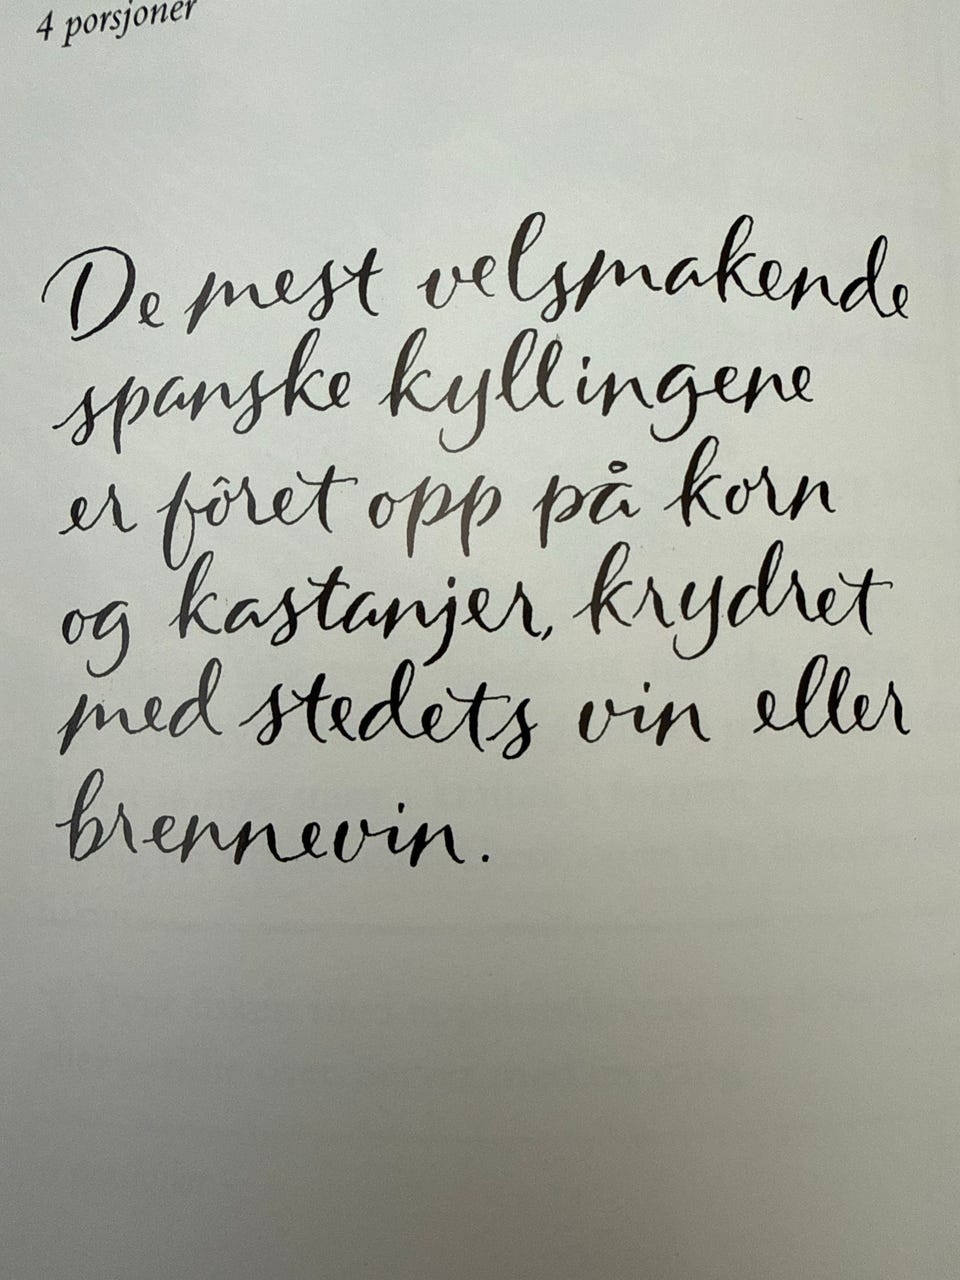 4 porsjoner
De mest velsmakende
spanske kyllingene
er fôret opp på korn
og kastanjer, krydret
med stedets vin eller
brennevin.